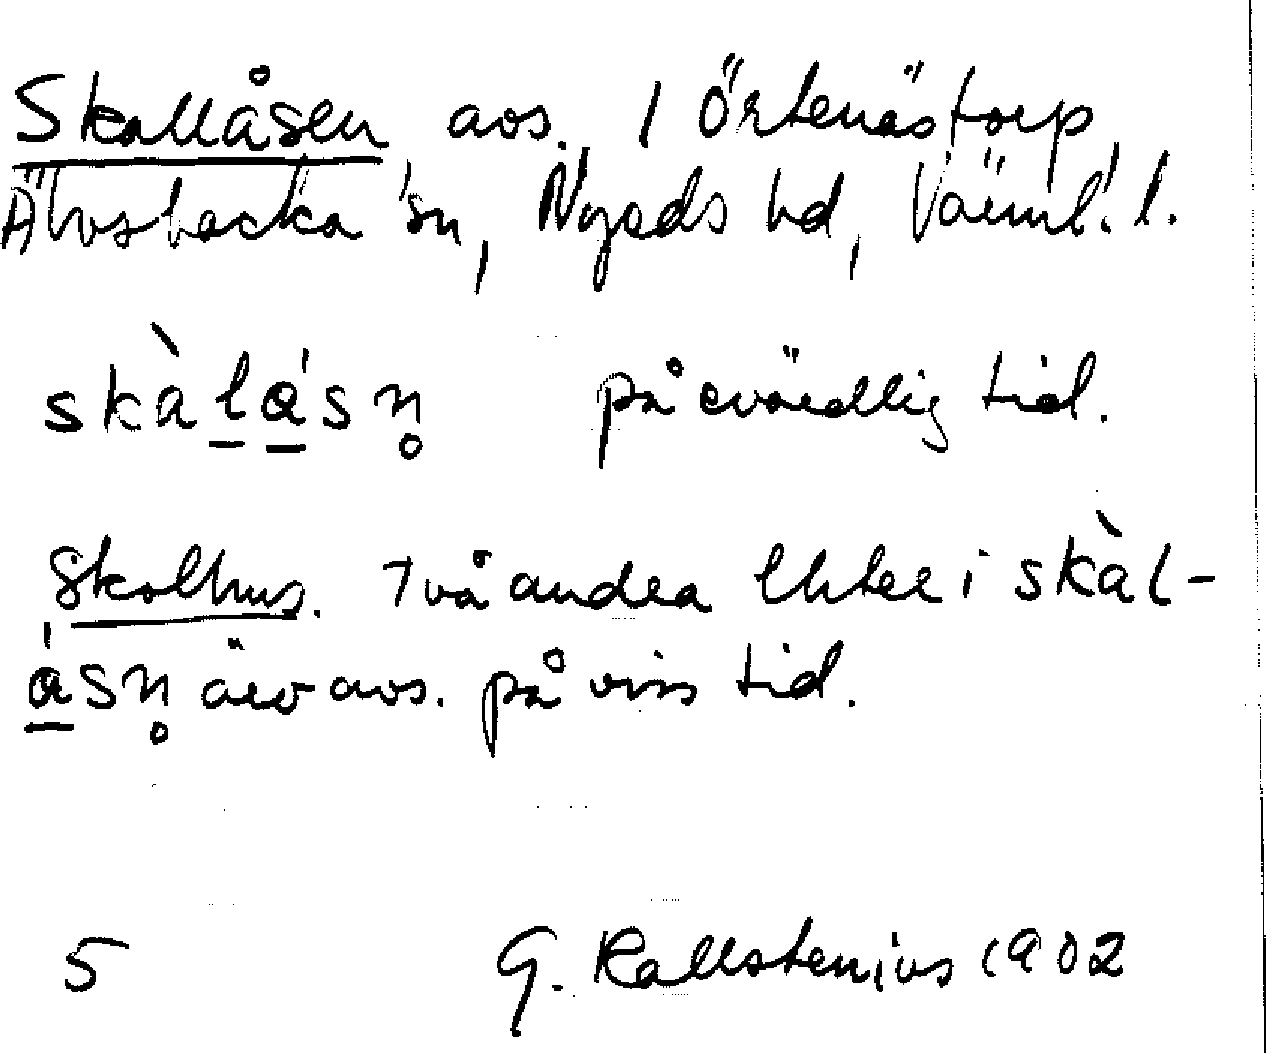 Skallåsen avs. / Örtenästorp,
Älvsbacka sn, Nyeds hd, Värml. l.
skàlásn̥ på ovärdlig tid.
Skolhus. Två andra lhter i skàl-
ásn̥ äro avs. på viss tid.
5 G. Kallstenius 1902